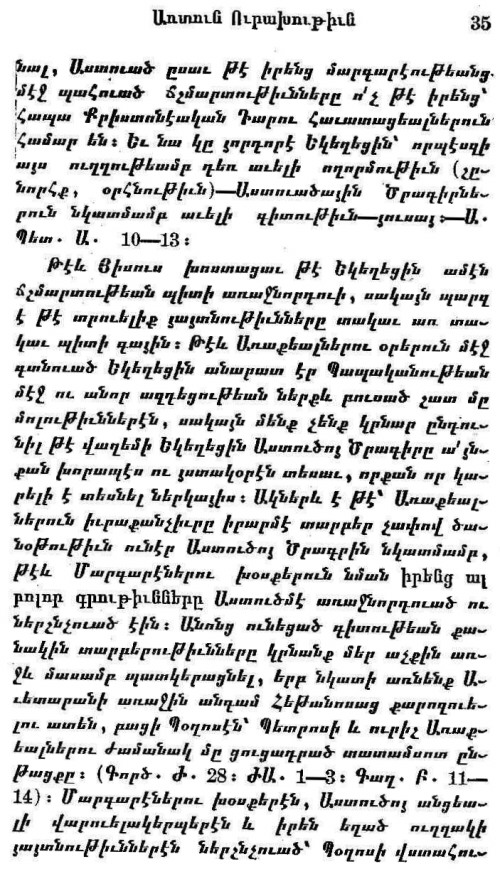 Առտուն Ուրախութիւն 35
նալ, Աստուած ըսաւ թէ իրենց մարգարէութեանց
մէջ պահուած ճշմարտութիւնները ո՛չ թէ իրենց՝
հապա Քրիստոնէական Դարու Հաւատացեալներուն
համար են։ Եւ նա կը յորդորէ Եկեղեցին՝ որպէսզի
այս ուղղութեամբ դեռ աւելի ողորմութիւն (շը-
նորհք, օրհնութիւն)—Աստուածային Ծրագիրնե-
րուն նկատմամբ աւելի գիտութիւն—յուսայ։—Ա.
Պետ. Ա. 10—13։
Թէև Յիսուս խոստացաւ թէ Եկեղեցին ամէն
ճշմարտութեան պիտի առաջնորդուի, սակայն պարզ
է թէ տրուելիք յայտնութիւնները տակաւ առ տա-
կաւ պիտի գային։ Թէև Առաքեալներու օրերուն մէջ
գտնուած Եկեղեցին անարատ էր Պապականութեան
մէջ ու անոր ազդեցութեան ներքև բուսած շատ մը
մոլութիւններէն, սակայն մենք չենք կրնար ընդու-
նիլ թէ վաղեմի Եկեղեցին Աստուծոյ Ծրագիրը ա՛յն-
քան խորապէս ու յստակօրէն տեսաւ, որքան որ կա-
րելի է տեսնել ներկայիս։ Ակներև է թէ՝ Առաքեալ-
ներուն իւրաքանչիւրը իրարմէ տարբեր չափով ծա-
նօթութիւն ունէր Աստուծոյ Ծրագրին նկատմամբ,
թէև Մարգարէներու խօսքերուն նման իրենց ալ
բոլոր գրութիւնները Աստուծմէ առաջնորդուած ու
ներշնչուած էին։ Անոնց ունեցած գիտութեան քա-
նակին տարբերութիւնները կրնանք մեր աչքին առ-
ջև մասամբ պատկերացնել, երբ նկատի առնենք Ա-
ւետարանի առաջին անգամ Հեթանոսաց քարոզուե-
լու ատեն, բացի Պօղոսէն՝ Պետրոսի և ուրիշ Առաք-
եալներու ժամանակ մը ցուցադրած տատամսոտ ըն-
թացքը։ (Գործ. Ժ. 28։ ԺԱ. 1—3։ Գաղ. Բ. 11—
14)։ Մարգարէներու խօսքերէն, Աստուծոյ անցեա-
լի վարուելակերպերէն և իրեն եղած ուղղակի
յայտնութիւններէն ներշնչուած՝ Պօղոսի վստահու-